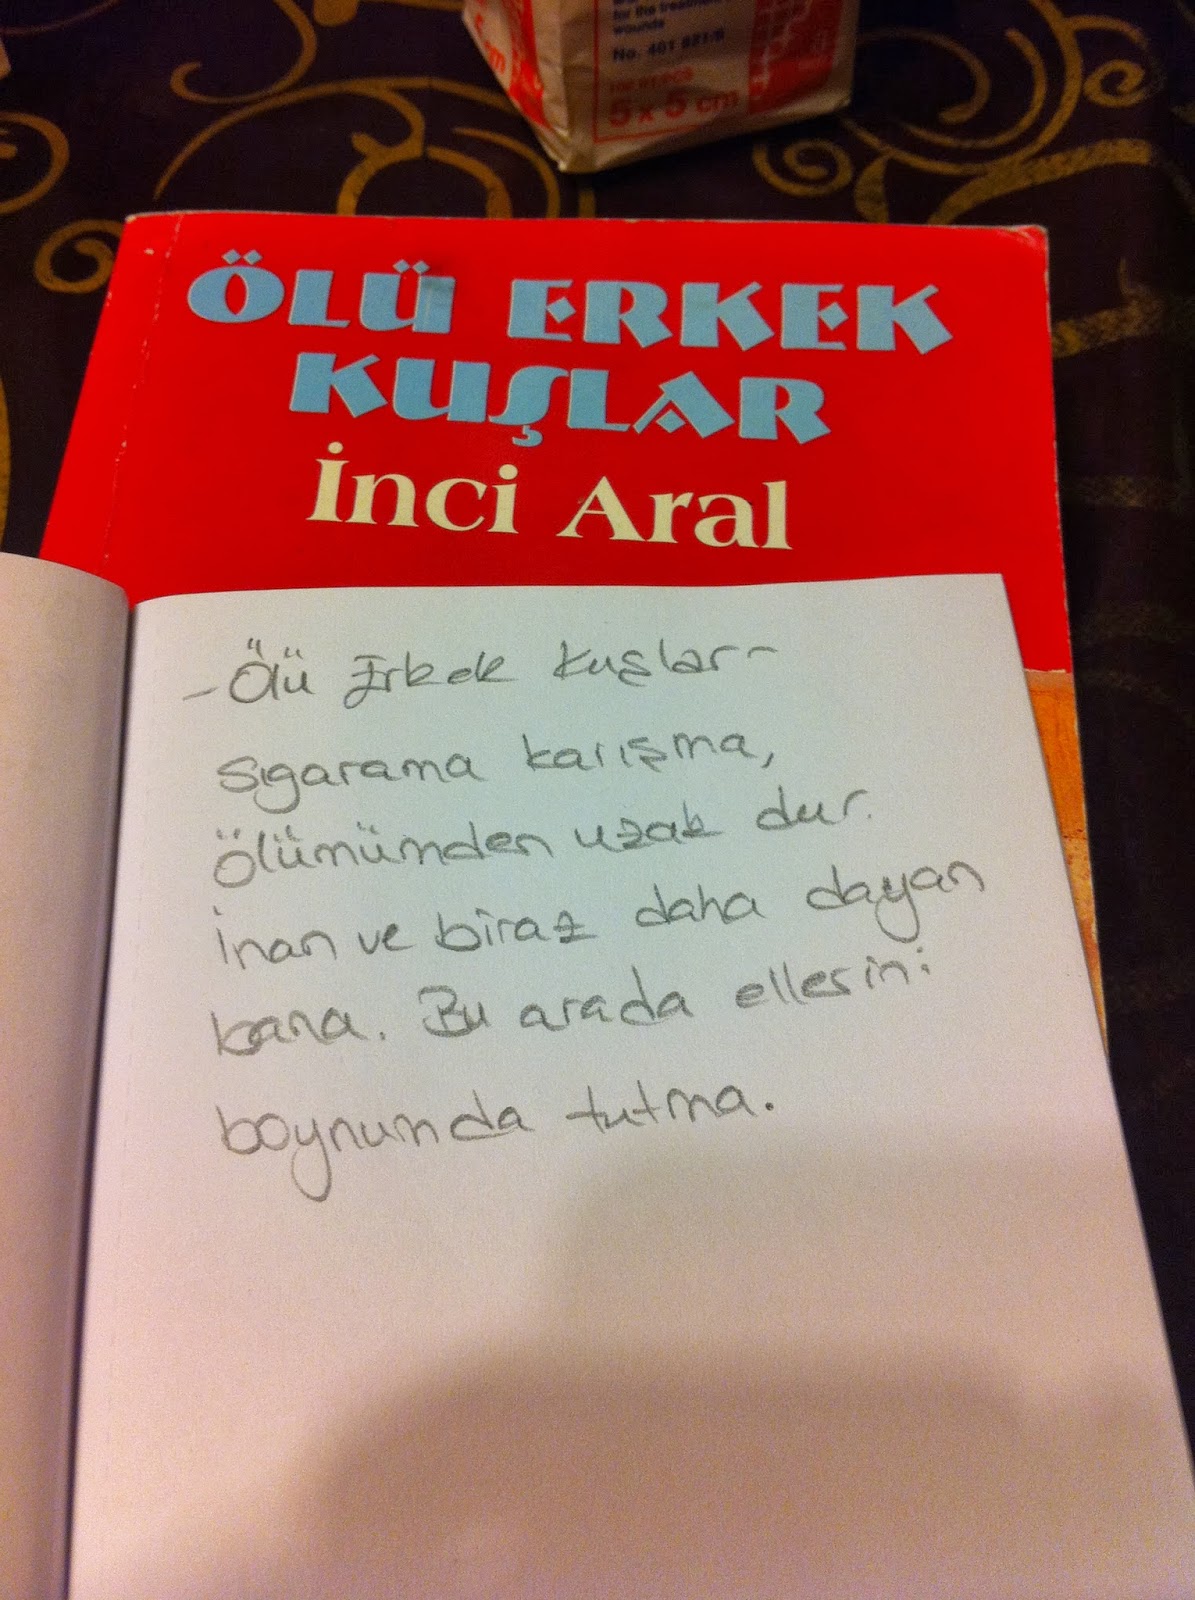 for the treatment
wounds
No. 401 821/8
5 x 5 cm
ÖLÜ ERKEK
KUŞLAR
İnci Aral
- Ölü Erkek Kuşlar -
Sıgarama karışma,
Ölümümden uzak dur.
İnan ve biraz daha dayan
bana. Bu arada ellerini
boynumda tutma.